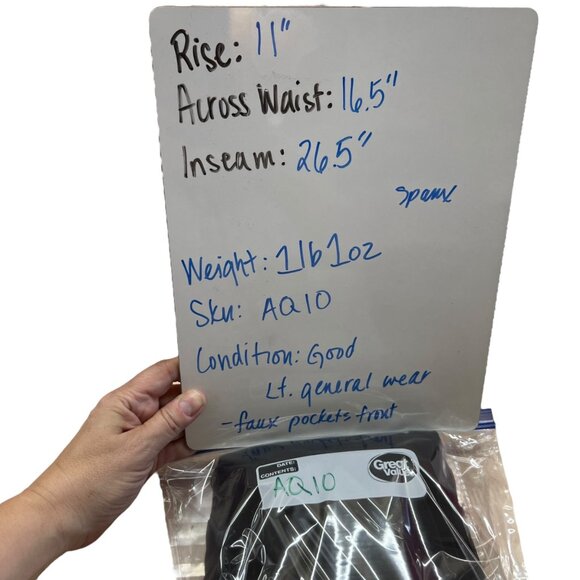 Rise: 11"
Across Waist: 16.5"
Inseam: 26.5"
Spanx
Weight: 1lb 1oz
Sku: AQ10
Condition: Good
Lt. general wear
- faux pockets front
DATE:
CONTENTS:
AQ10
Great Value